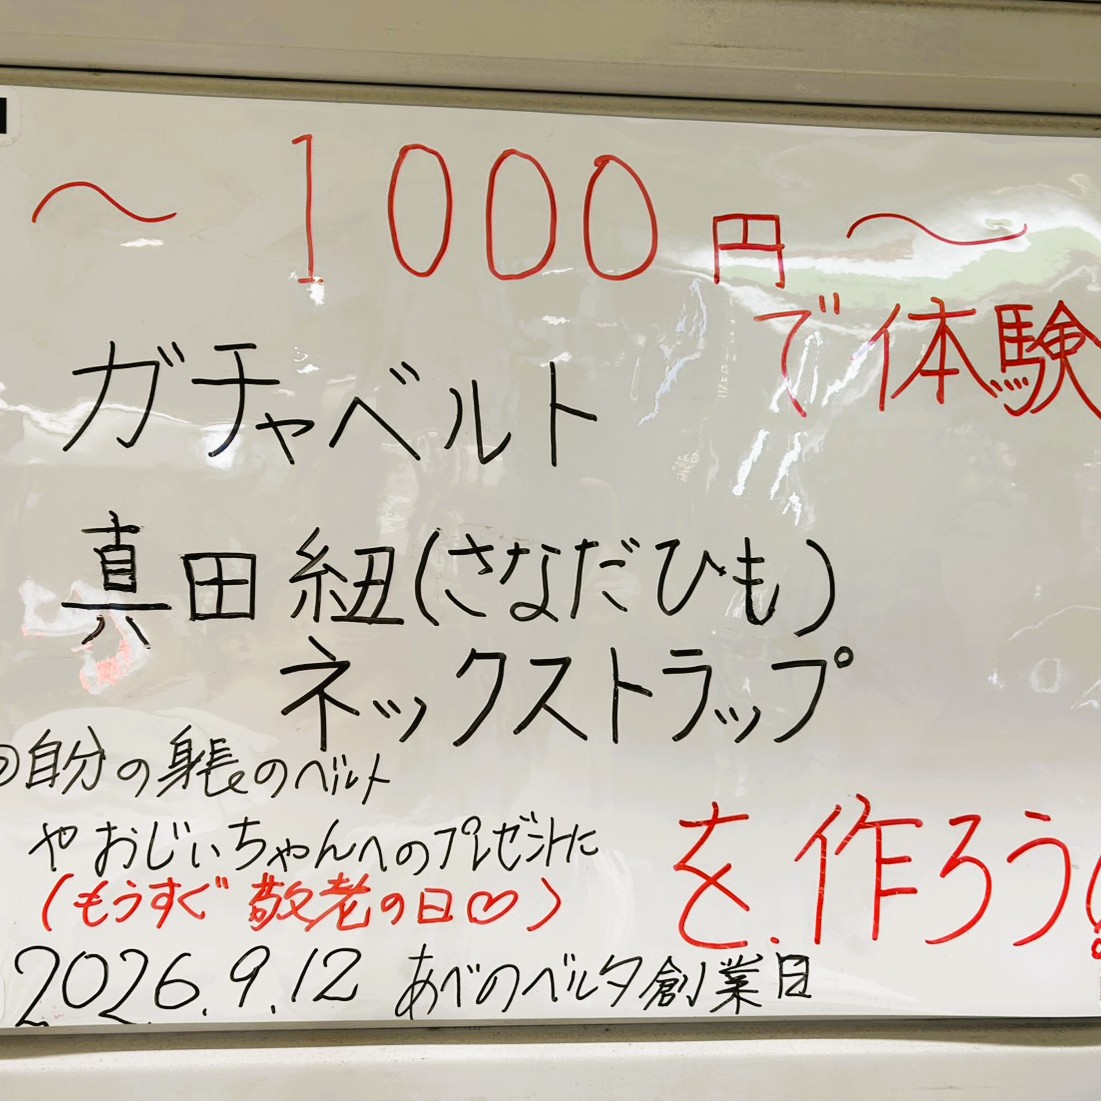 〜1000円〜
で体験
ガチャベルト
真田紐(さなだひも)
ネックストラップ
自分の身長のベルト
やおじいちゃんへのプレゼントに
(もうすぐ敬老の日♡)
を作ろう
2026.9.12 あべのベルタ創業日